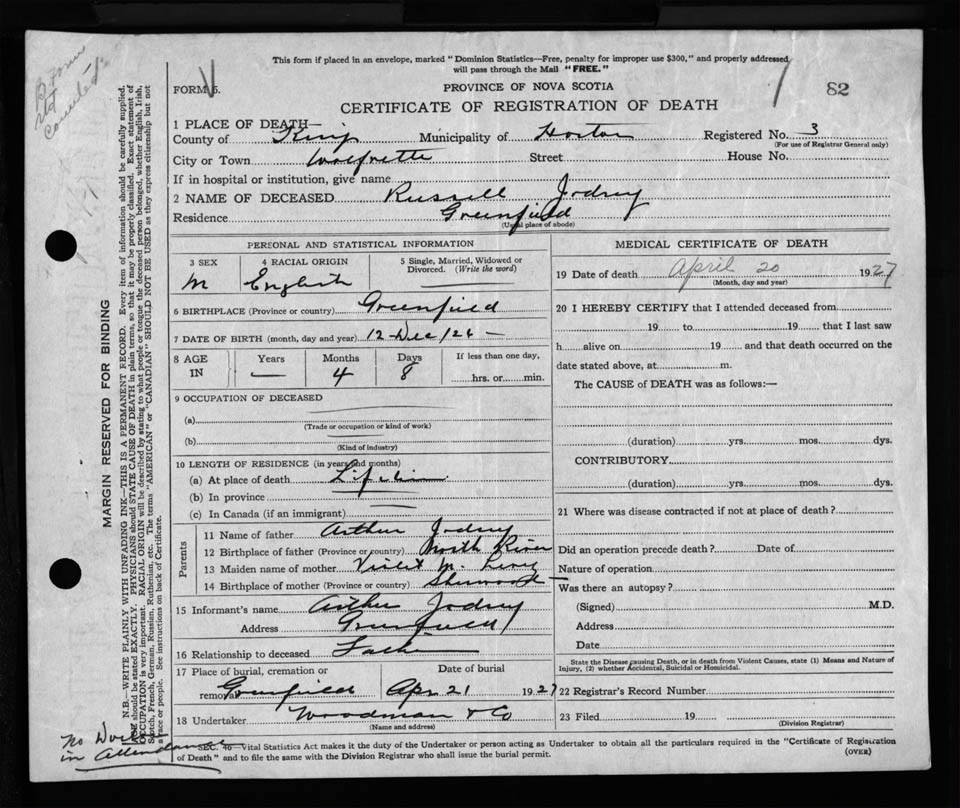 This form if placed in an envelope, marked "Dominion Statistics—Free, penalty for improper use $300," and properly addressed
will pass through the Mail "FREE."
FORM 5.
PROVINCE OF NOVA SCOTIA
82
CERTIFICATE OF REGISTRATION OF DEATH
1 PLACE OF DEATH—
County of Kings Municipality of Horton Registered No. 3
(For use of Registrar General only)
City or Town Street House No.
If in hospital or institution, give name
2 NAME OF DECEASED Russell Jodrey
Residence Greenfield
(Usual place of abode)
PERSONAL AND STATISTICAL INFORMATION
3 SEX M
4 RACIAL ORIGIN English
5 Single, Married, Widowed or
Divorced. (Write the word)
6 BIRTHPLACE (Province or country) Greenfield
7 DATE OF BIRTH (month, day and year) 12 Dec/26 —
8 AGE IN Years — Months 4 Days 8 If less than one day,
hrs. or min.
9 OCCUPATION OF DECEASED
(a)
(Trade or occupation or kind of work)
(b)
(Kind of industry)
10 LENGTH OF RESIDENCE (in years and months)
(a) At place of death
(b) In province
(c) In Canada (if an immigrant)
Parents
11 Name of father Arthur Jodrey
12 Birthplace of father (Province or country) North River
13 Maiden name of mother Violet M.
14 Birthplace of mother (Province or country) Sherwood
15 Informant's name Arthur Jodrey
Address Greenfield
16 Relationship to deceased Father
17 Place of burial, cremation or
removal Greenfield
Date of burial
Apr 21 1927
18 Undertaker Woodman & Co
(Name and address)
MEDICAL CERTIFICATE OF DEATH
19 Date of death April 20 1927
(Month, day and year)
20 I HEREBY CERTIFY that I attended deceased from
19 to 19 that I last saw
h alive on 19 and that death occurred on the
date stated above, at m.
The CAUSE of DEATH was as follows:—
(duration) yrs. mos. dys.
CONTRIBUTORY
(duration) yrs. mos. dys.
21 Where was disease contracted if not at place of death?
Did an operation precede death? Date of
Nature of operation
Was there an autopsy?
(Signed) M.D.
Address
Date
State the Disease causing Death, or in death from Violent Causes, state (1) Means and Nature of
Injury, (2) whether Accidental, Suicidal or Homicidal.
22 Registrar's Record Number
23 Filed 19
(Division Registrar)
SEC. 46—Vital Statistics Act makes it the duty of the Undertaker or person acting as Undertaker to obtain all the particulars required in the "Certificate of Registration
of Death" and to file the same with the Division Registrar who shall issue the burial permit.
(OVER)
MARGIN RESERVED FOR BINDING
N.B.—WRITE PLAINLY WITH UNFADING INK—THIS IS A PERMANENT RECORD. Every item of information should be carefully supplied.
AGE should be stated EXACTLY. PHYSICIANS should STATE CAUSE OF DEATH in plain terms, so that it may be properly classified. Exact statement of
OCCUPATION is very important. RACIAL ORIGIN will be described by stating to what people or tongue the deceased person belonged, whether English, Irish,
Scotch, French, German, Russian, Ruthenian, etc. The terms "AMERICAN" or "CANADIAN" SHOULD NOT BE USED as they express citizenship but not
a race or people. See instructions on back of Certificate.
No Doctor
in Attendance